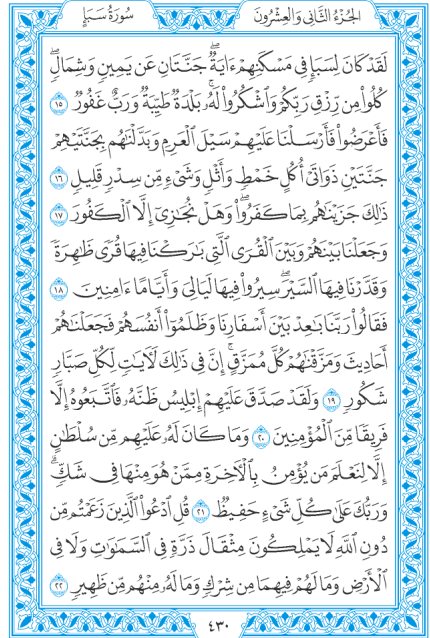 سُورَةُ سَبَإٍ الجُزْءُ الثَّانِي وَالعِشْرُونَ
لَقَدْ كَانَ لِسَبَإٖ فِي مَسۡكَنِهِمۡ ءَايَةٞۖ جَنَّتَانِ عَن يَمِينٖ وَشِمَالٖۖ
كُلُواْ مِن رِّزۡقِ رَبِّكُمۡ وَٱشۡكُرُواْ لَهُۥۚ بَلۡدَةٞ طَيِّبَةٞ وَرَبٌّ غَفُورٞ ١٥
فَأَعۡرَضُواْ فَأَرۡسَلۡنَا عَلَيۡهِمۡ سَيۡلَ ٱلۡعَرِمِ وَبَدَّلۡنَٰهُم بِجَنَّتَيۡهِمۡ
جَنَّتَيۡنِ ذَوَاتَيۡ أُكُلٍ خَمۡطٖ وَأَثۡلٖ وَشَيۡءٖ مِّن سِدۡرٖ قَلِيلٖ ١٦
ذَٰلِكَ جَزَيۡنَٰهُم بِمَا كَفَرُواْۖ وَهَلۡ نُجَٰزِيٓ إِلَّا ٱلۡكَفُورَ ١٧
وَجَعَلۡنَا بَيۡنَهُمۡ وَبَيۡنَ ٱلۡقُرَى ٱلَّتِي بَٰرَكۡنَا فِيهَا قُرٗى ظَٰهِرَةٗ
وَقَدَّرۡنَا فِيهَا ٱلسَّيۡرَۖ سِيرُواْ فِيهَا لَيَالِيَ وَأَيَّامًا ءَامِنِينَ ١٨
فَقَالُواْ رَبَّنَا بَٰعِدۡ بَيۡنَ أَسۡفَارِنَا وَظَلَمُوٓاْ أَنفُسَهُمۡ فَجَعَلۡنَٰهُمۡ
أَحَادِيثَ وَمَزَّقۡنَٰهُمۡ كُلَّ مُمَزَّقٍۚ إِنَّ فِي ذَٰلِكَ لَأٓيَٰتٖ لِّكُلِّ صَبَّارٖ
شَكُورٖ ١٩ وَلَقَدۡ صَدَّقَ عَلَيۡهِمۡ إِبۡلِيسُ ظَنَّهُۥ فَٱتَّبَعُوهُ إِلَّا
فَرِيقٗا مِّنَ ٱلۡمُؤۡمِنِينَ ٢٠ وَمَا كَانَ لَهُۥ عَلَيۡهِم مِّن سُلۡطَٰنٍ
إِلَّا لِنَعۡلَمَ مَن يُؤۡمِنُ بِٱلۡأٓخِرَةِ مِمَّنۡ هُوَ مِنۡهَا فِي شَكّٖۗ
وَرَبُّكَ عَلَىٰ كُلِّ شَيۡءٍ حَفِيظٞ ٢١ قُلِ ٱدۡعُواْ ٱلَّذِينَ زَعَمۡتُم مِّن
دُونِ ٱللَّهِ لَا يَمۡلِكُونَ مِثۡقَالَ ذَرَّةٖ فِي ٱلسَّمَٰوَٰتِ وَلَا فِي
ٱلۡأَرۡضِ وَمَا لَهُمۡ فِيهِمَا مِن شِرۡكٖ وَمَا لَهُۥ مِنۡهُم مِّن ظَهِيرٖ ٢٢
٤٣٠